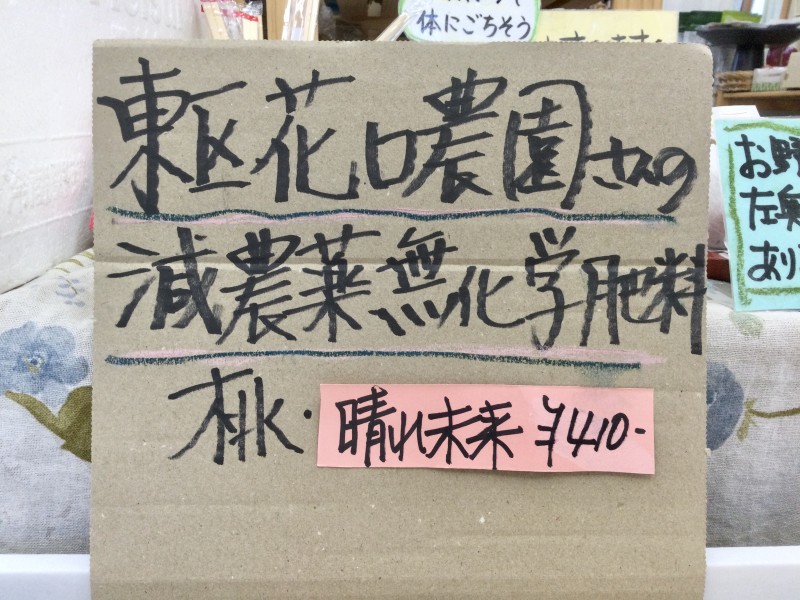 体にごちそう
東区花口農園さんの
減農薬無化学肥料
桃・
晴れ未来 ¥410-
お野
左奥
あり